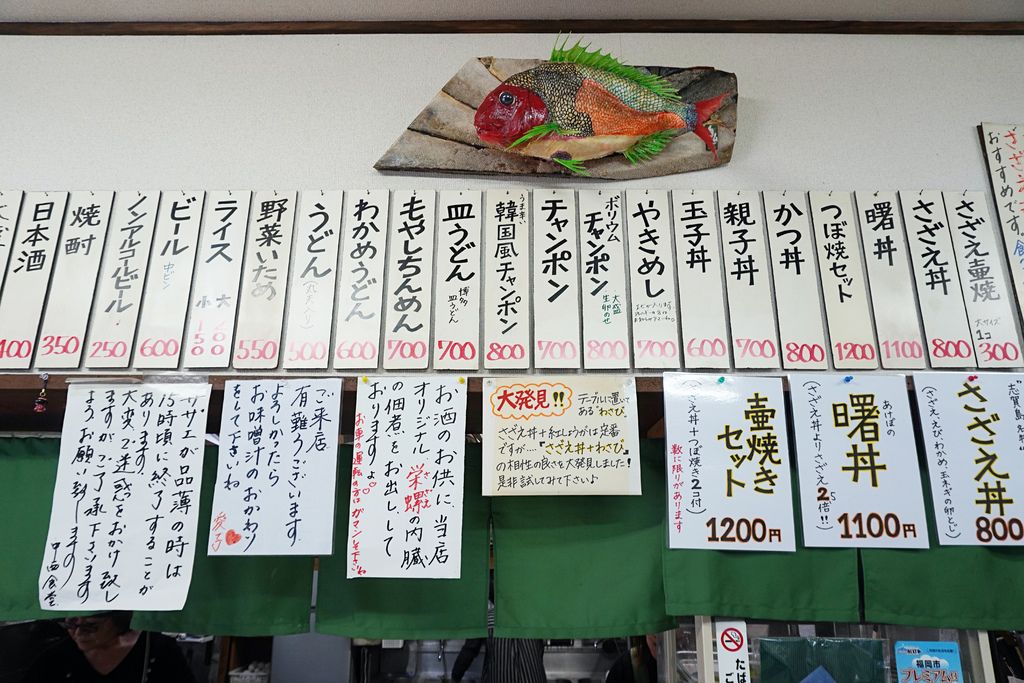 さざえ
おすすめです
さざえ壷焼
大サイズ
1コ
300
さざえ丼
800
曙丼
1100
つぼ焼セット
1200
かつ丼
800
親子丼
700
玉子丼
600
やきめし
700
ボリウム
チャンポン
大盛
生卵のせ
800
チャンポン
700
うま辛い
韓国風チャンポン
800
皿うどん
博多
皿うどん
700
もやしちゃんめん
700
わかめうどん
600
うどん
500
野菜いため
550
ライス
大 200
小 150
ビール
中ビン
600
ノンアルコールビール
250
焼酎
350
日本酒
400
志賀島
さざえ丼
(さざえ、えび、わかめ、玉ネギの卵とじ)
800
あけぼの
曙丼
(さざえ丼よりさざえ2.5倍!!)
1100円
壷焼き
セット
(さざえ丼+つぼ焼き2コ付)
数に限りがあります
1200円
大発見!!
テーブルに置いて
ある"わさび"
さざえ丼+紅しょうがは定番
ですが…『さざえ丼+わさび』
の相性の良さを大発見しました!
是非試してみて下さい♪
お酒のお供に、当店
オリジナル、栄螺の内臓
さざえ
の佃煮をお出しして
おりますよ♡
お車の運転の方はガマンして下さいね
ご来店
有難うございます。
よろしかったら
お味噌汁のおかわり
をして下さいね
愛子
サザエが品薄の時は
15時頃に終了することが
あります。
大変ご迷惑をおかけ致し
ますが、ご了承下さいます
ようお願い致します
中西食堂
福岡市
プレミアム